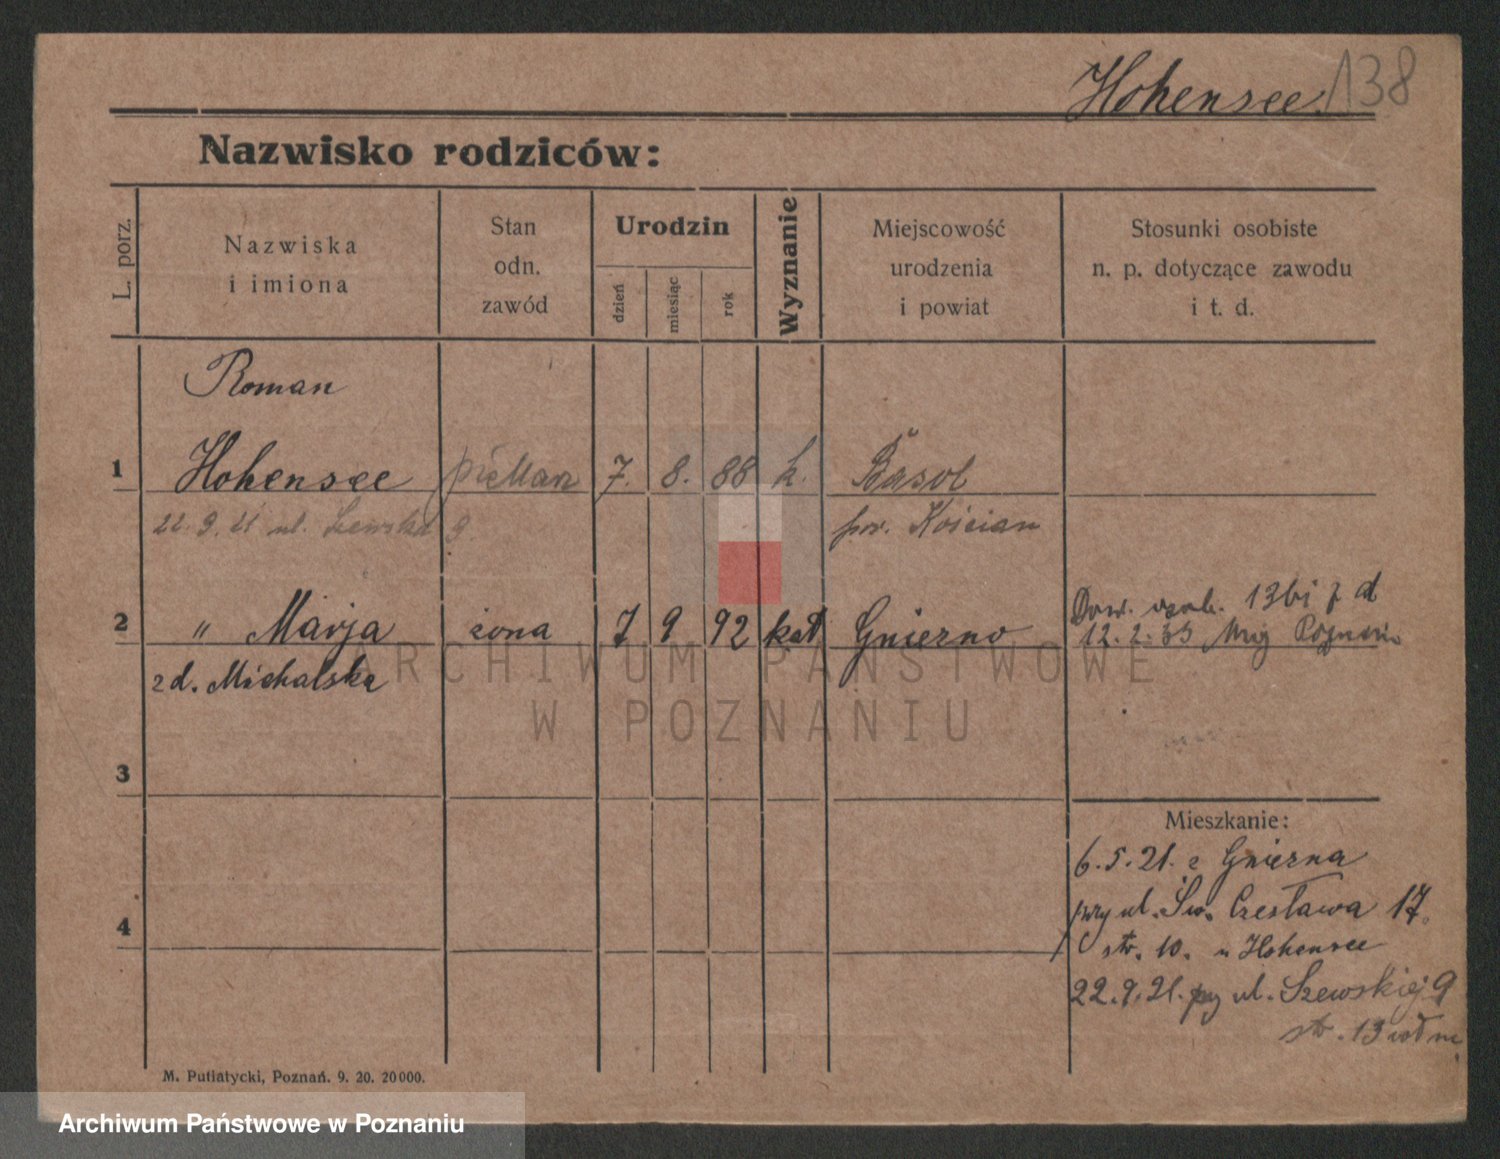 Hohensee. 138
Nazwisko rodziców:
L. porz.
Nazwiska
i imiona
Stan
odn.
zawód
Urodzin
dzień
miesiąc
rok
Wyznanie
Miejscowość
urodzenia
i powiat
Stosunki osobiste
n. p. dotyczące zawodu
i t. d.
Roman
1 Hohensee 7. 8. 88 k.
22. 9. 21 ul. Szewska 9.
pow. Kościan
2 " Marja żona 7 9 92 kat Gniezno
Dow. osob.
12. 2. 33 Mag Poznania
zd. Michalska
3
Mieszkanie:
6. 5. 21. z Gniezna
przy ul. Św. Czesława 17.
4
str. 10. u Hohensee
22. 9. 21. przy ul. Szewskiej 9
str. 13
M. Putiatycki, Poznań. 9. 20. 20000.
ARCHIWUM PAŃSTWOWE
W POZNANIU
Archiwum Państwowe w Poznaniu